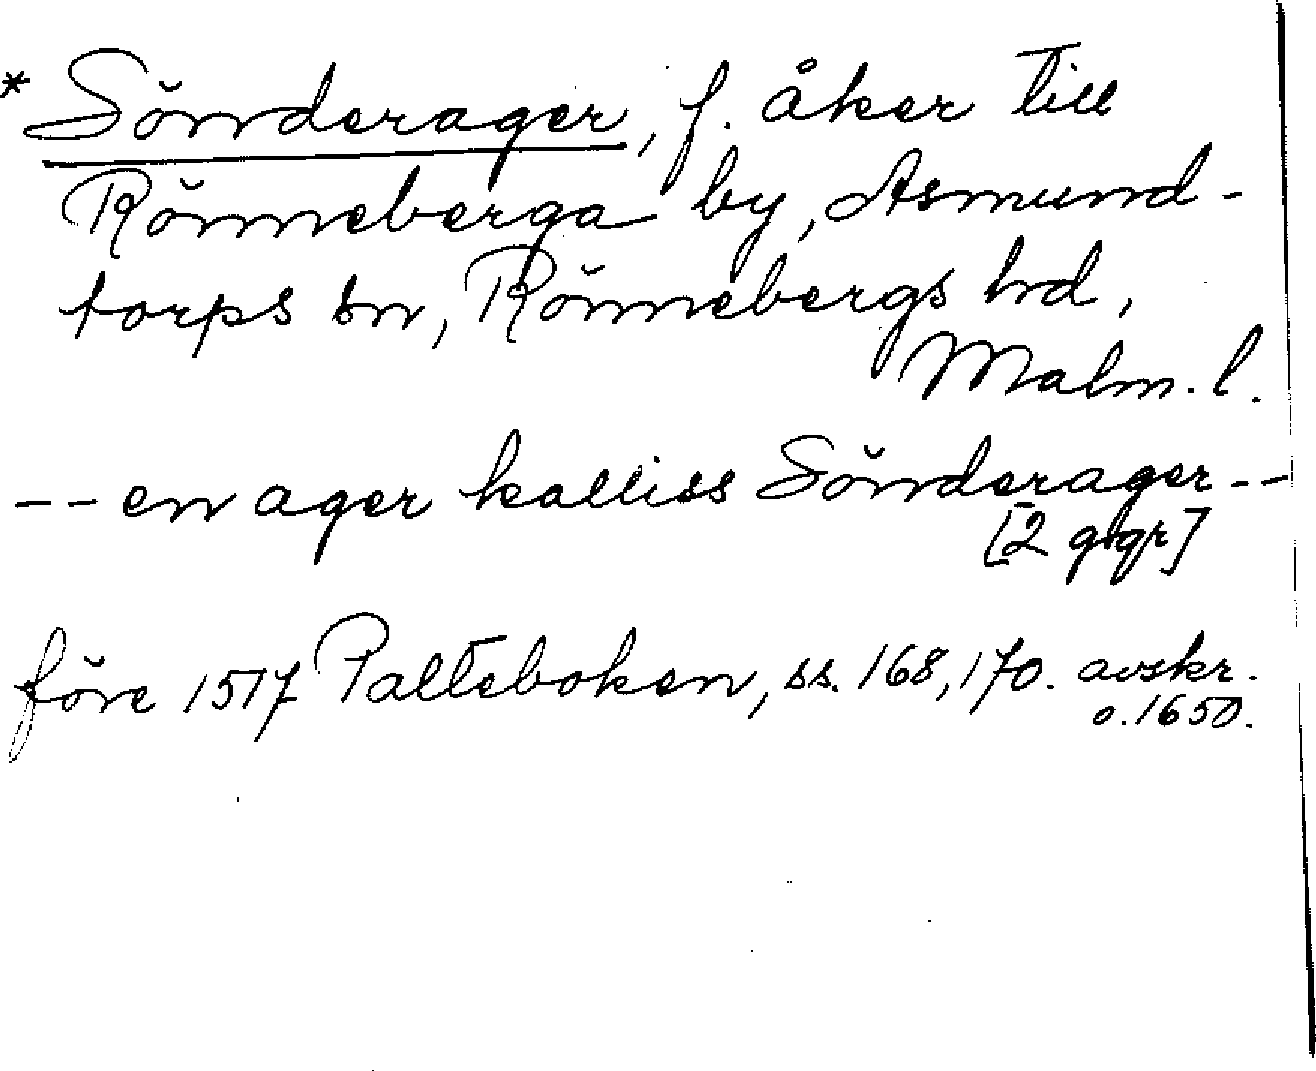 * Sönderager, f. åker till
Rönneberga by, Asmund-
torps sn, Rönnebergs hd,
Malm. l.
-- en ager kalliss Sönderager --
[2 ggr]
före 1517 Palteboken, ss. 168, 170. avskr.
o. 1650.